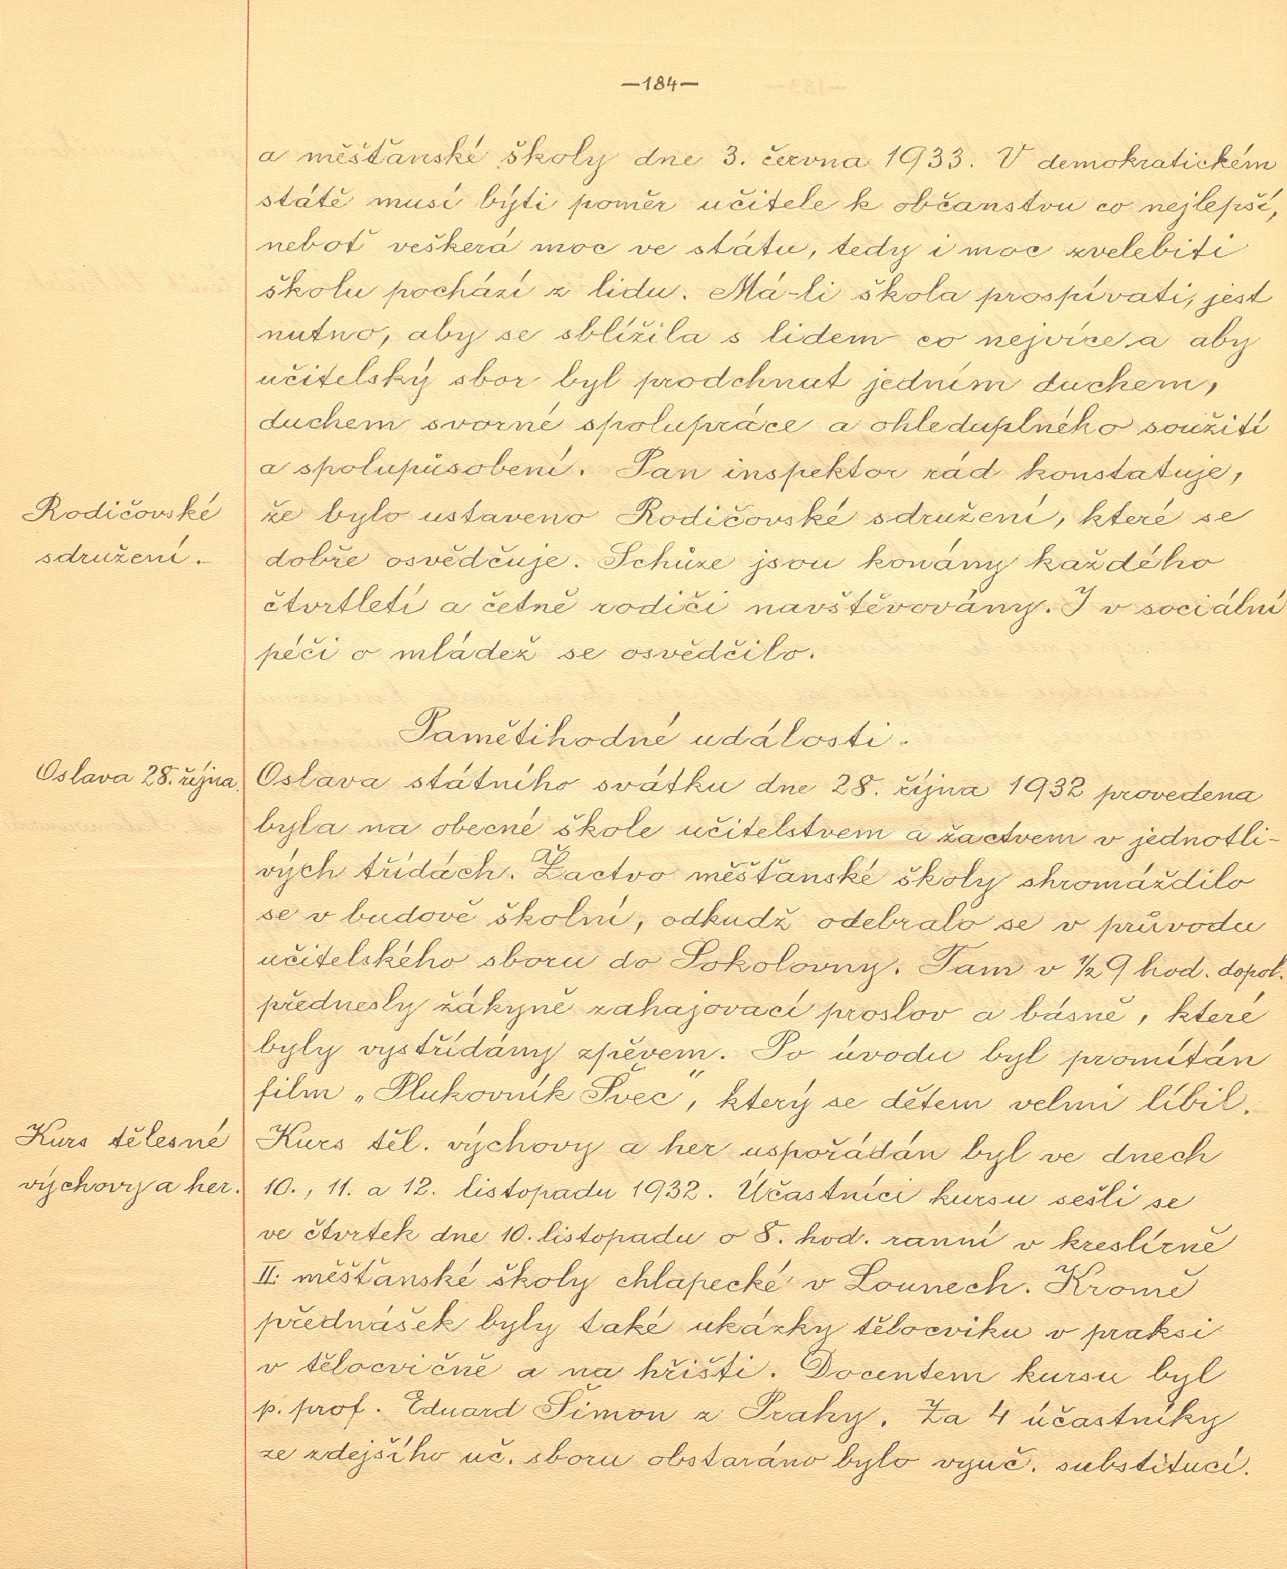 —184—
a měšťanské školy dne 3. června 1933. V demokratickém
státě musí býti poměr učitele k občanstvu co nejlepší,
neboť veškerá moc ve státu, tedy i moc zvelebiti
školu pochází z lidu. Má-li škola prospívati, jest
nutno, aby se sblížila s lidem co nejvíce a aby
učitelský sbor byl prodchnut jedním duchem,
duchem svorné spolupráce a ohleduplného soužití
a spolupůsobení. Pan inspektor rád konstatuje,
Rodičovské
sdružení.
že bylo ustaveno Rodičovské sdružení, které se
dobře osvědčuje. Schůze jsou konány každého
čtvrtletí a četně rodiči navštěvovány. I v sociální
péči o mládež se osvědčilo.
Pamětihodné události.
Oslava 28. října.
Oslava státního svátku dne 28. října 1932 provedena
byla na obecné škole učitelstvem a žactvem v jednotli-
vých třídách. Žactvo měšťanské školy shromáždilo
se v budově školní, odkudž odebralo se v průvodu
učitelského sboru do Sokolovny. Tam v ½9 hod. dopol.
přednesly žákyně zahajovací proslov a básně, které
byly vystřídány zpěvem. Po úvodu byl promítán
film „Plukovník Švec“, který se dětem velmi líbil.
Kurs tělesné
výchovy a her.
Kurs těl. výchovy a her uspořádán byl ve dnech
10., 11. a 12. listopadu 1932. Účastníci kursu sešli se
ve čtvrtek dne 10. listopadu o 8. hod. ranní v kreslírně
II. měšťanské školy chlapecké v Lounech. Kromě
přednášek byly také ukázky tělocviku v praksi
v tělocvičně a na hřišti. Docentem kursu byl
p. prof. Eduard Šimon z Prahy. Za 4 účastníky
ze zdejšího uč. sboru obstaráno bylo vyuč. substitucí.